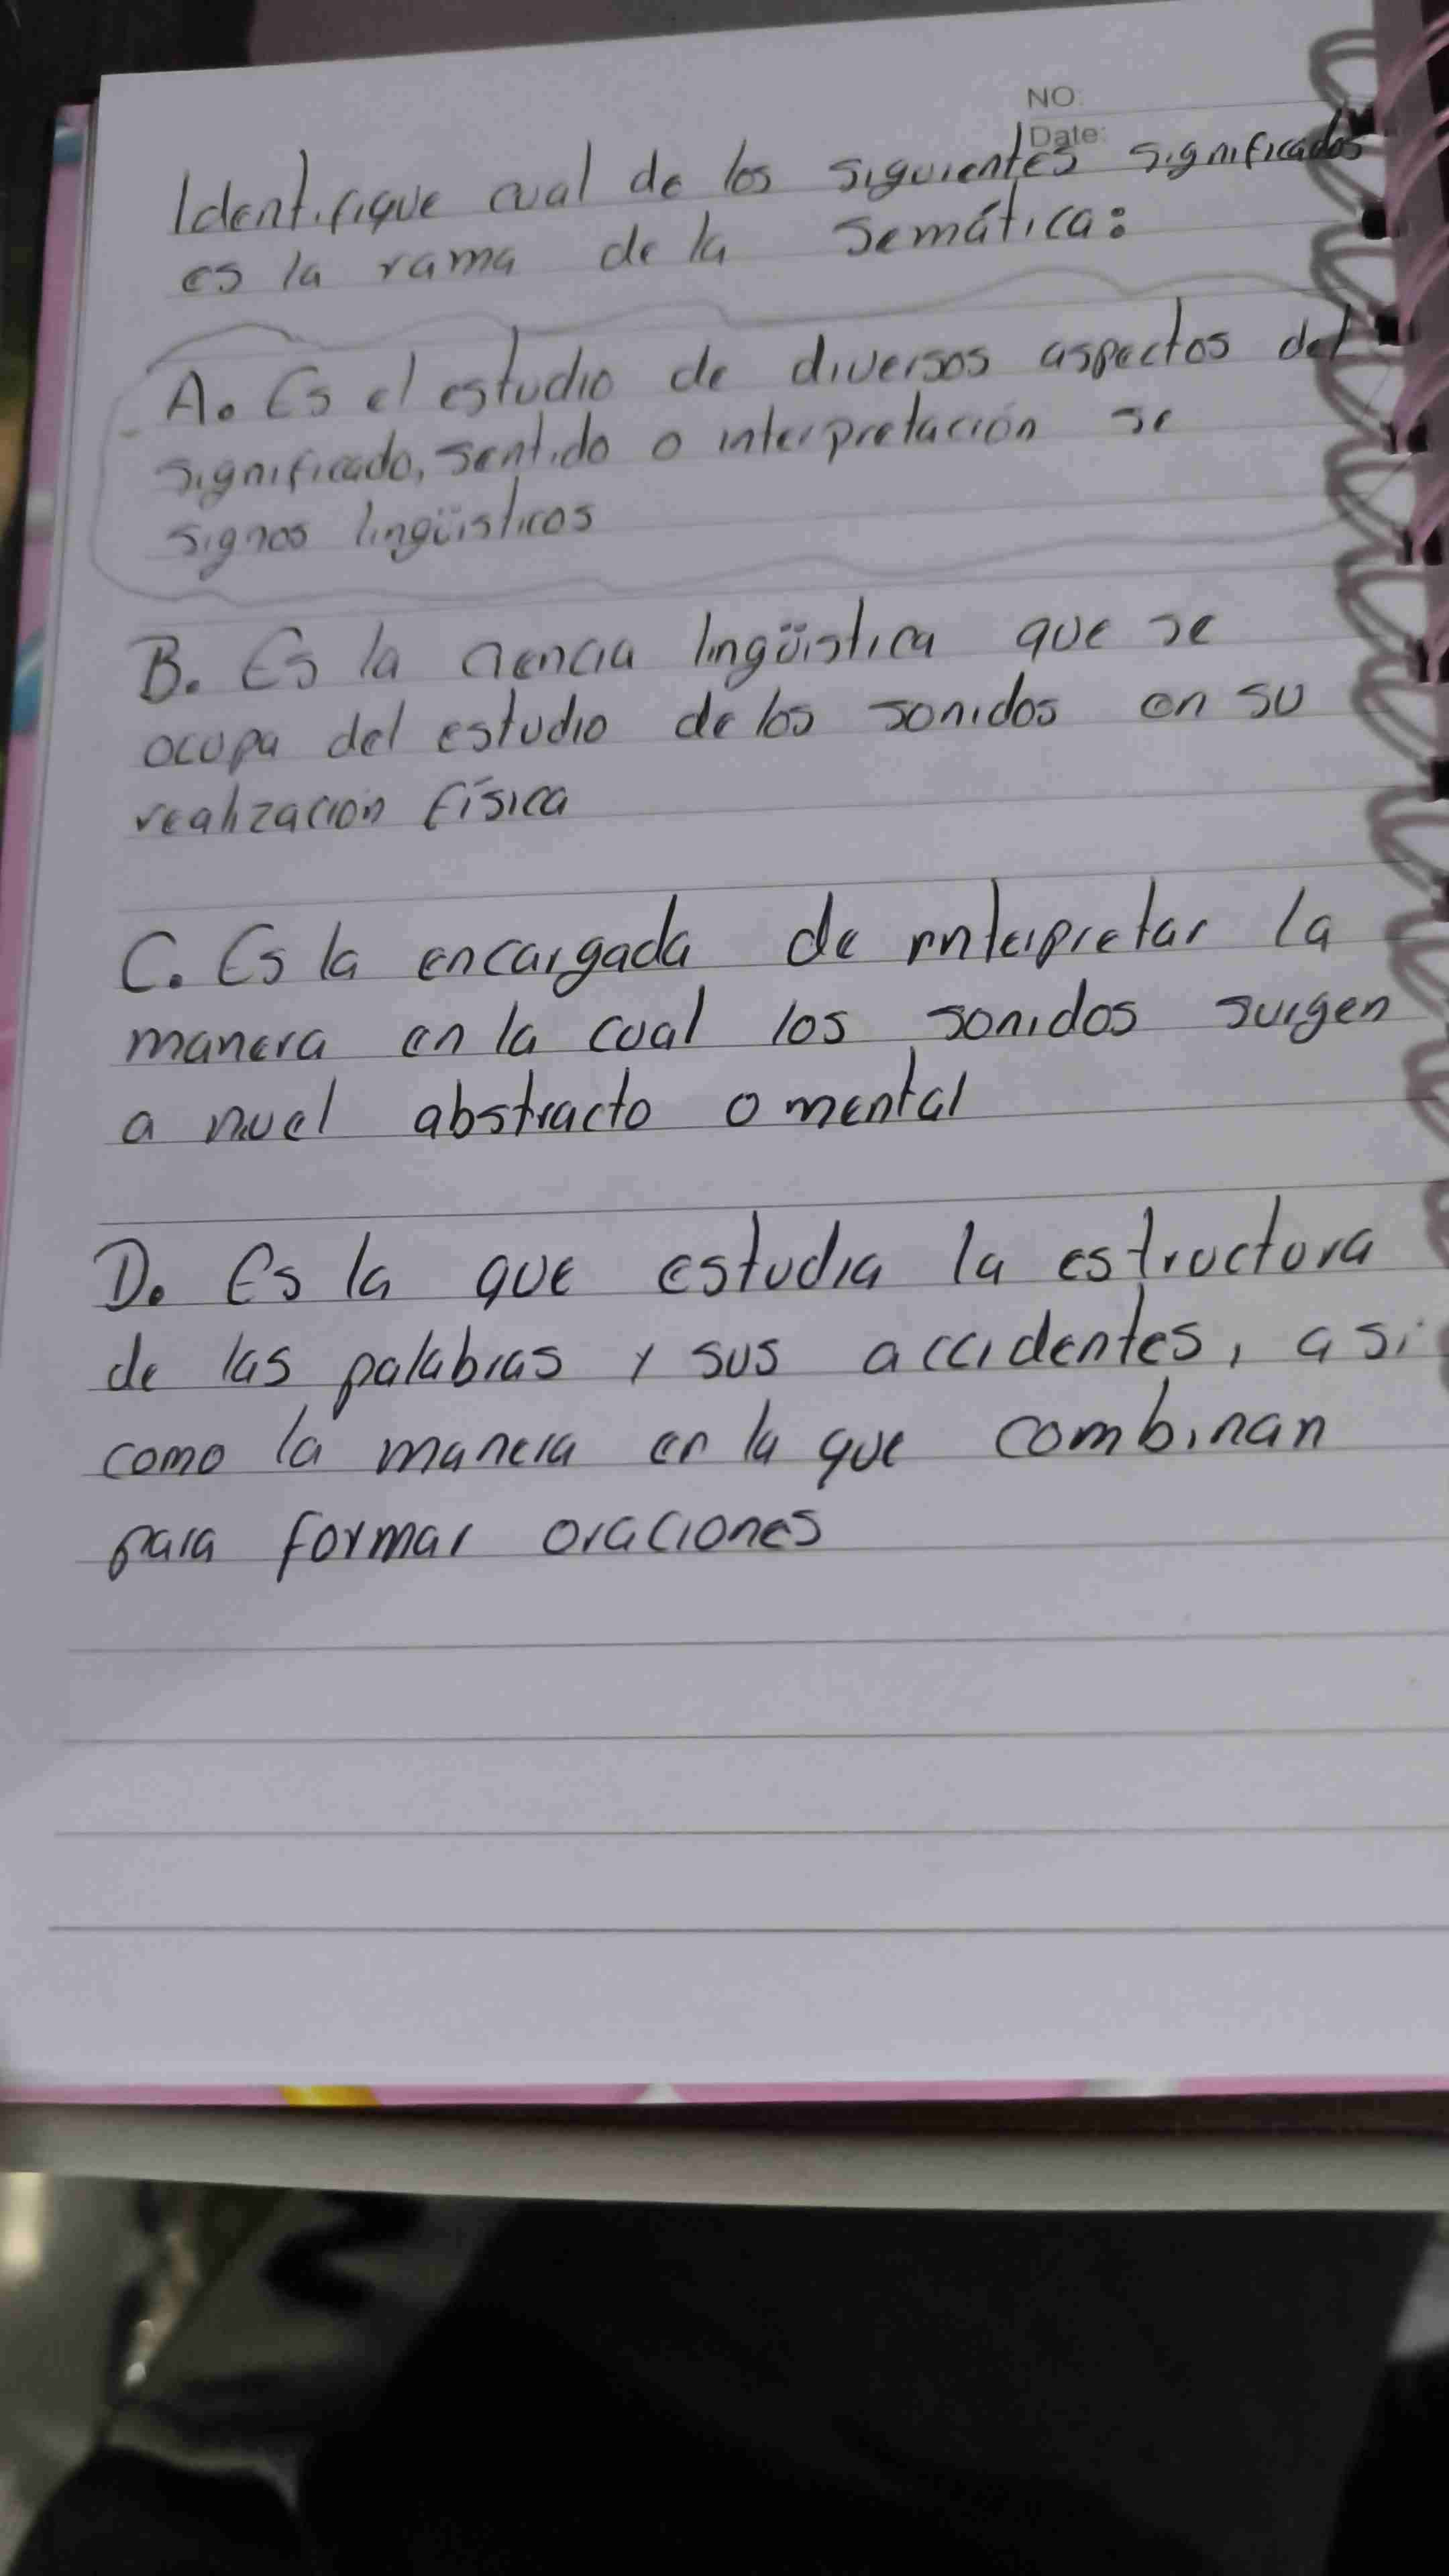 NO:
Date:
Identifique cual de los siguientes significados
es la rama de la Semática:
A. Es el estudio de diversos aspectos del
significado, sentido o interpretación se
signos lingüisticos
B. Es la ciencia lingüistica que se
ocupa del estudio de los sonidos en su
realización física
C. Es la encargada de interpretar la
manera en la cual los sonidos surgen
a nivel abstracto o mental
D. Es la que estudia la estructura
de las palabras y sus accidentes, asi
como la manera en la que combinan
para formar oraciones